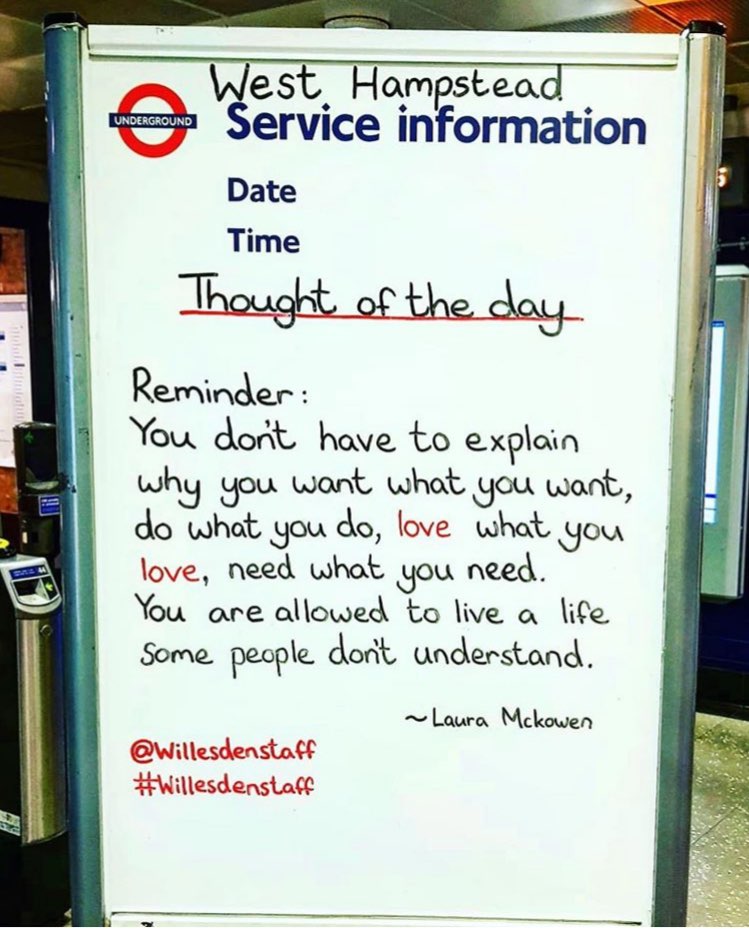 West Hampstead
UNDERGROUND
Service information
Date
Time
Thought of the day
Reminder:
You don't have to explain
why you want what you want,
do what you do, love what you
love, need what you need.
You are allowed to live a life
some people don't understand.
~Laura Mckowen
@Willesdenstaff
#Willesdenstaff